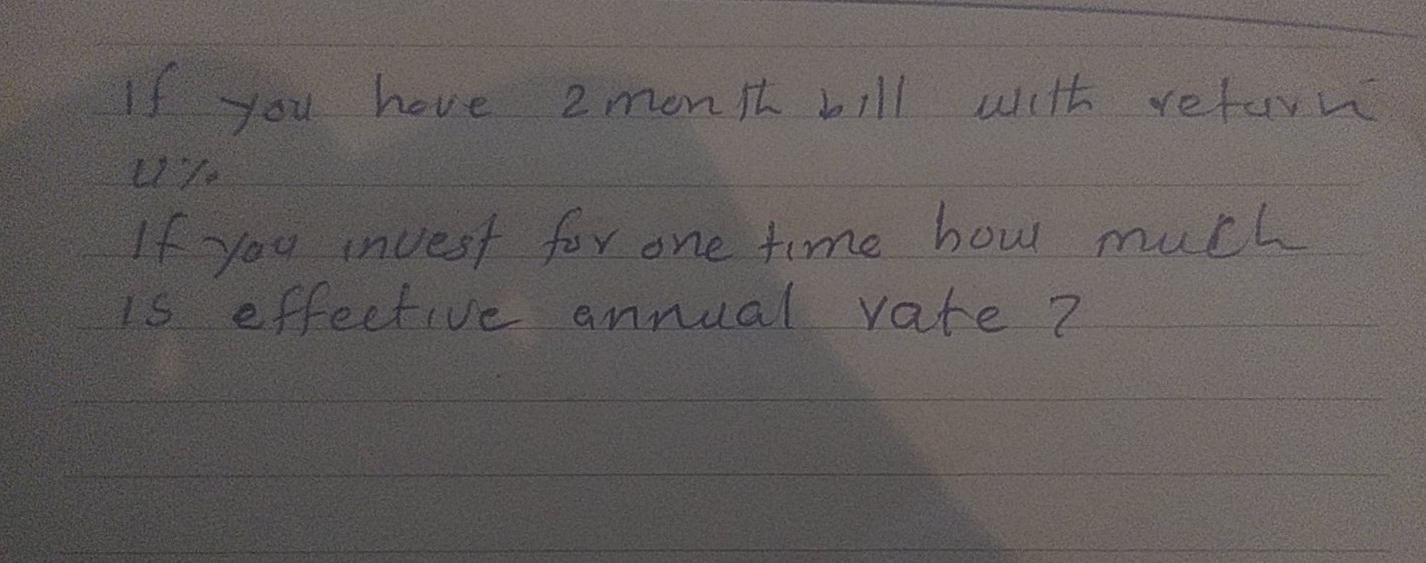 If you have 2 month bill with return
If you invest for one time how much
is effective annual rate ?